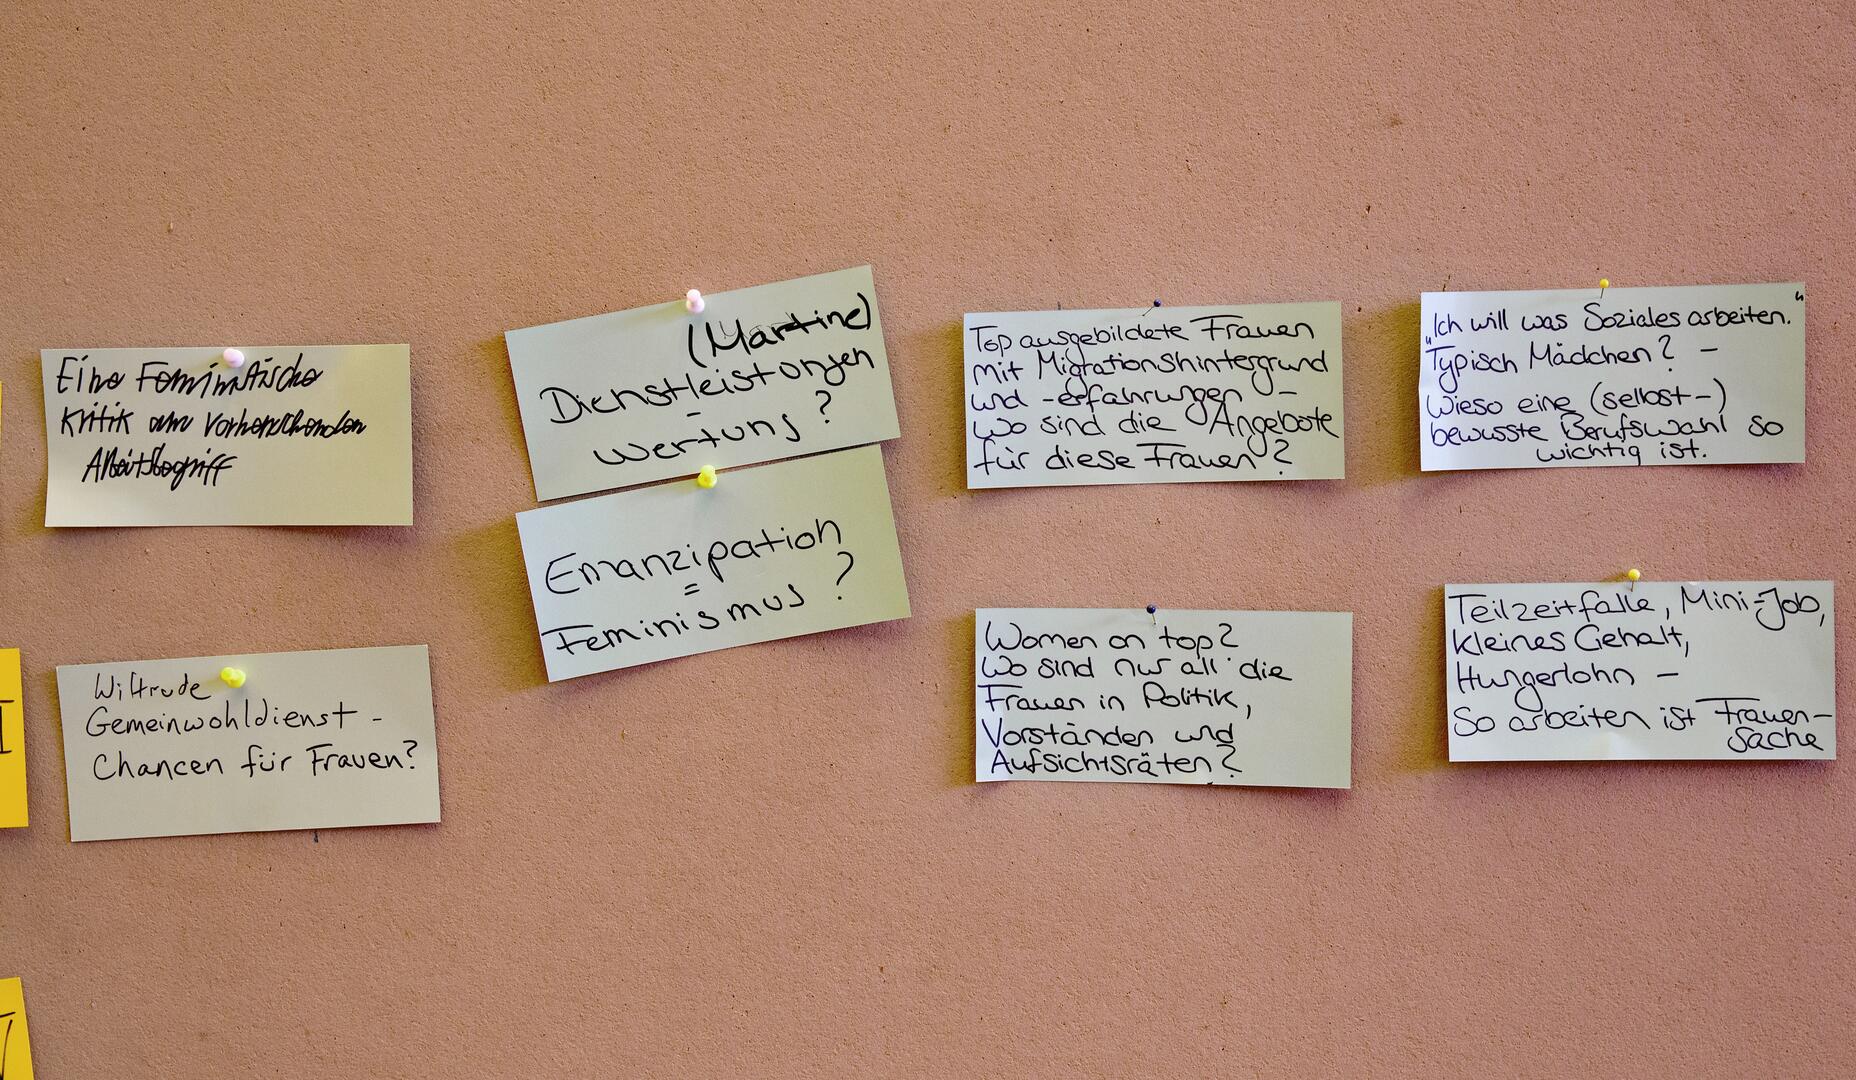 Eine Feministische
Kritik am vorherrschenden
Arbeitsbegriff
Wiltrude
Gemeinwohldienst -
Chancen für Frauen?
(Martine)
Dienstleistungen
-
wertung?
Emanzipation
=
Feminismus?
Top ausgebildete Frauen
mit Migrationshintergrund
und -erfahrungen -
Wo sind die Angebote
für diese Frauen?
Women on top?
Wo sind nur all die
Frauen in Politik,
Vorständen und
Aufsichtsräten?
"Ich will was Soziales arbeiten."
Typisch Mädchen? -
Wieso eine (selbst-)
bewusste Berufswahl so
wichtig ist.
Teilzeitfalle, Mini-Job,
kleines Gehalt,
Hungerlohn -
So arbeiten ist Frauen-
sache